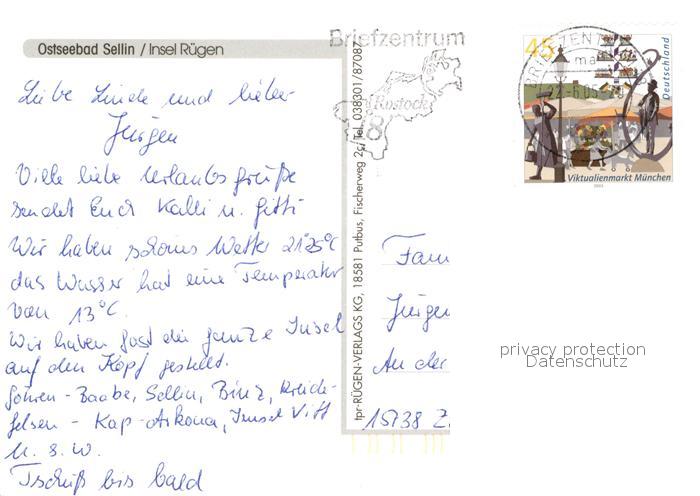 Ostseebad Sellin / Insel Rügen
Liebe Linde und lieber
Jürgen
Viele liebe Urlaubsgrüße
sendet Euch Kalli u. Gitti
Wir haben schönes Wetter 21°25°C
das Wasser hat eine Temperatur
von 13°C.
Wir haben fast die ganze Insel
auf den Kopf gestellt.
Göhren - Baabe, Sellin, Binz, Kreide-
felsen - Kap-Arkona, Insel Vitt
u. s. w.
Tschüß bis bald
tpr-RÜGEN-VERLAGS KG, 18581 Putbus, Fischerweg 2c, Tel. 038301/87087
Briefzentrum
Rostock
18
BRIEFZENTRUM
45
Deutschland
Viktualienmarkt München
2003
Fam
Jürgen
An der
15738 Z
privacy protection
Datenschutz